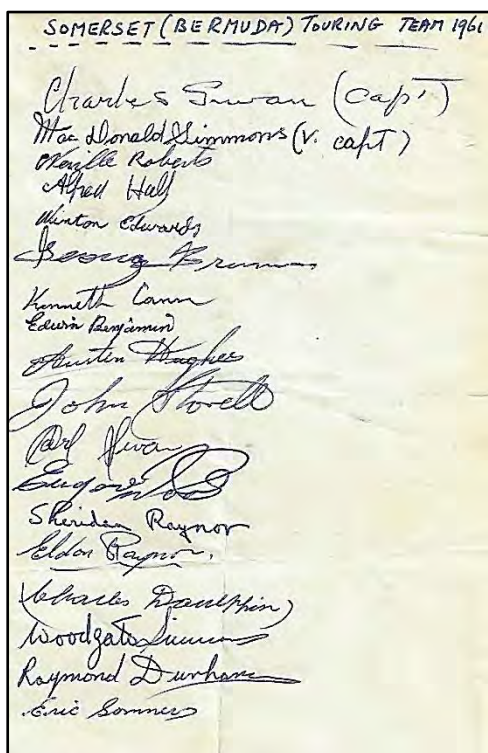 SOMERSET (BERMUDA) TOURING TEAM 1961
Charles Swan (Capt)
MacDonald Simmons (V. capt)
Neville Roberts
Alfred Hall
Winton Edwards
George
Kenneth Cann
Edwin Benjamin
Austin Hughes
John Stovell
Carl Swan
Eugene
Sheridan Raynor
Eldon Raynor.
(Charles Daulphin)
Woodgate Simmons
Raymond Dunham
Eric Sommers